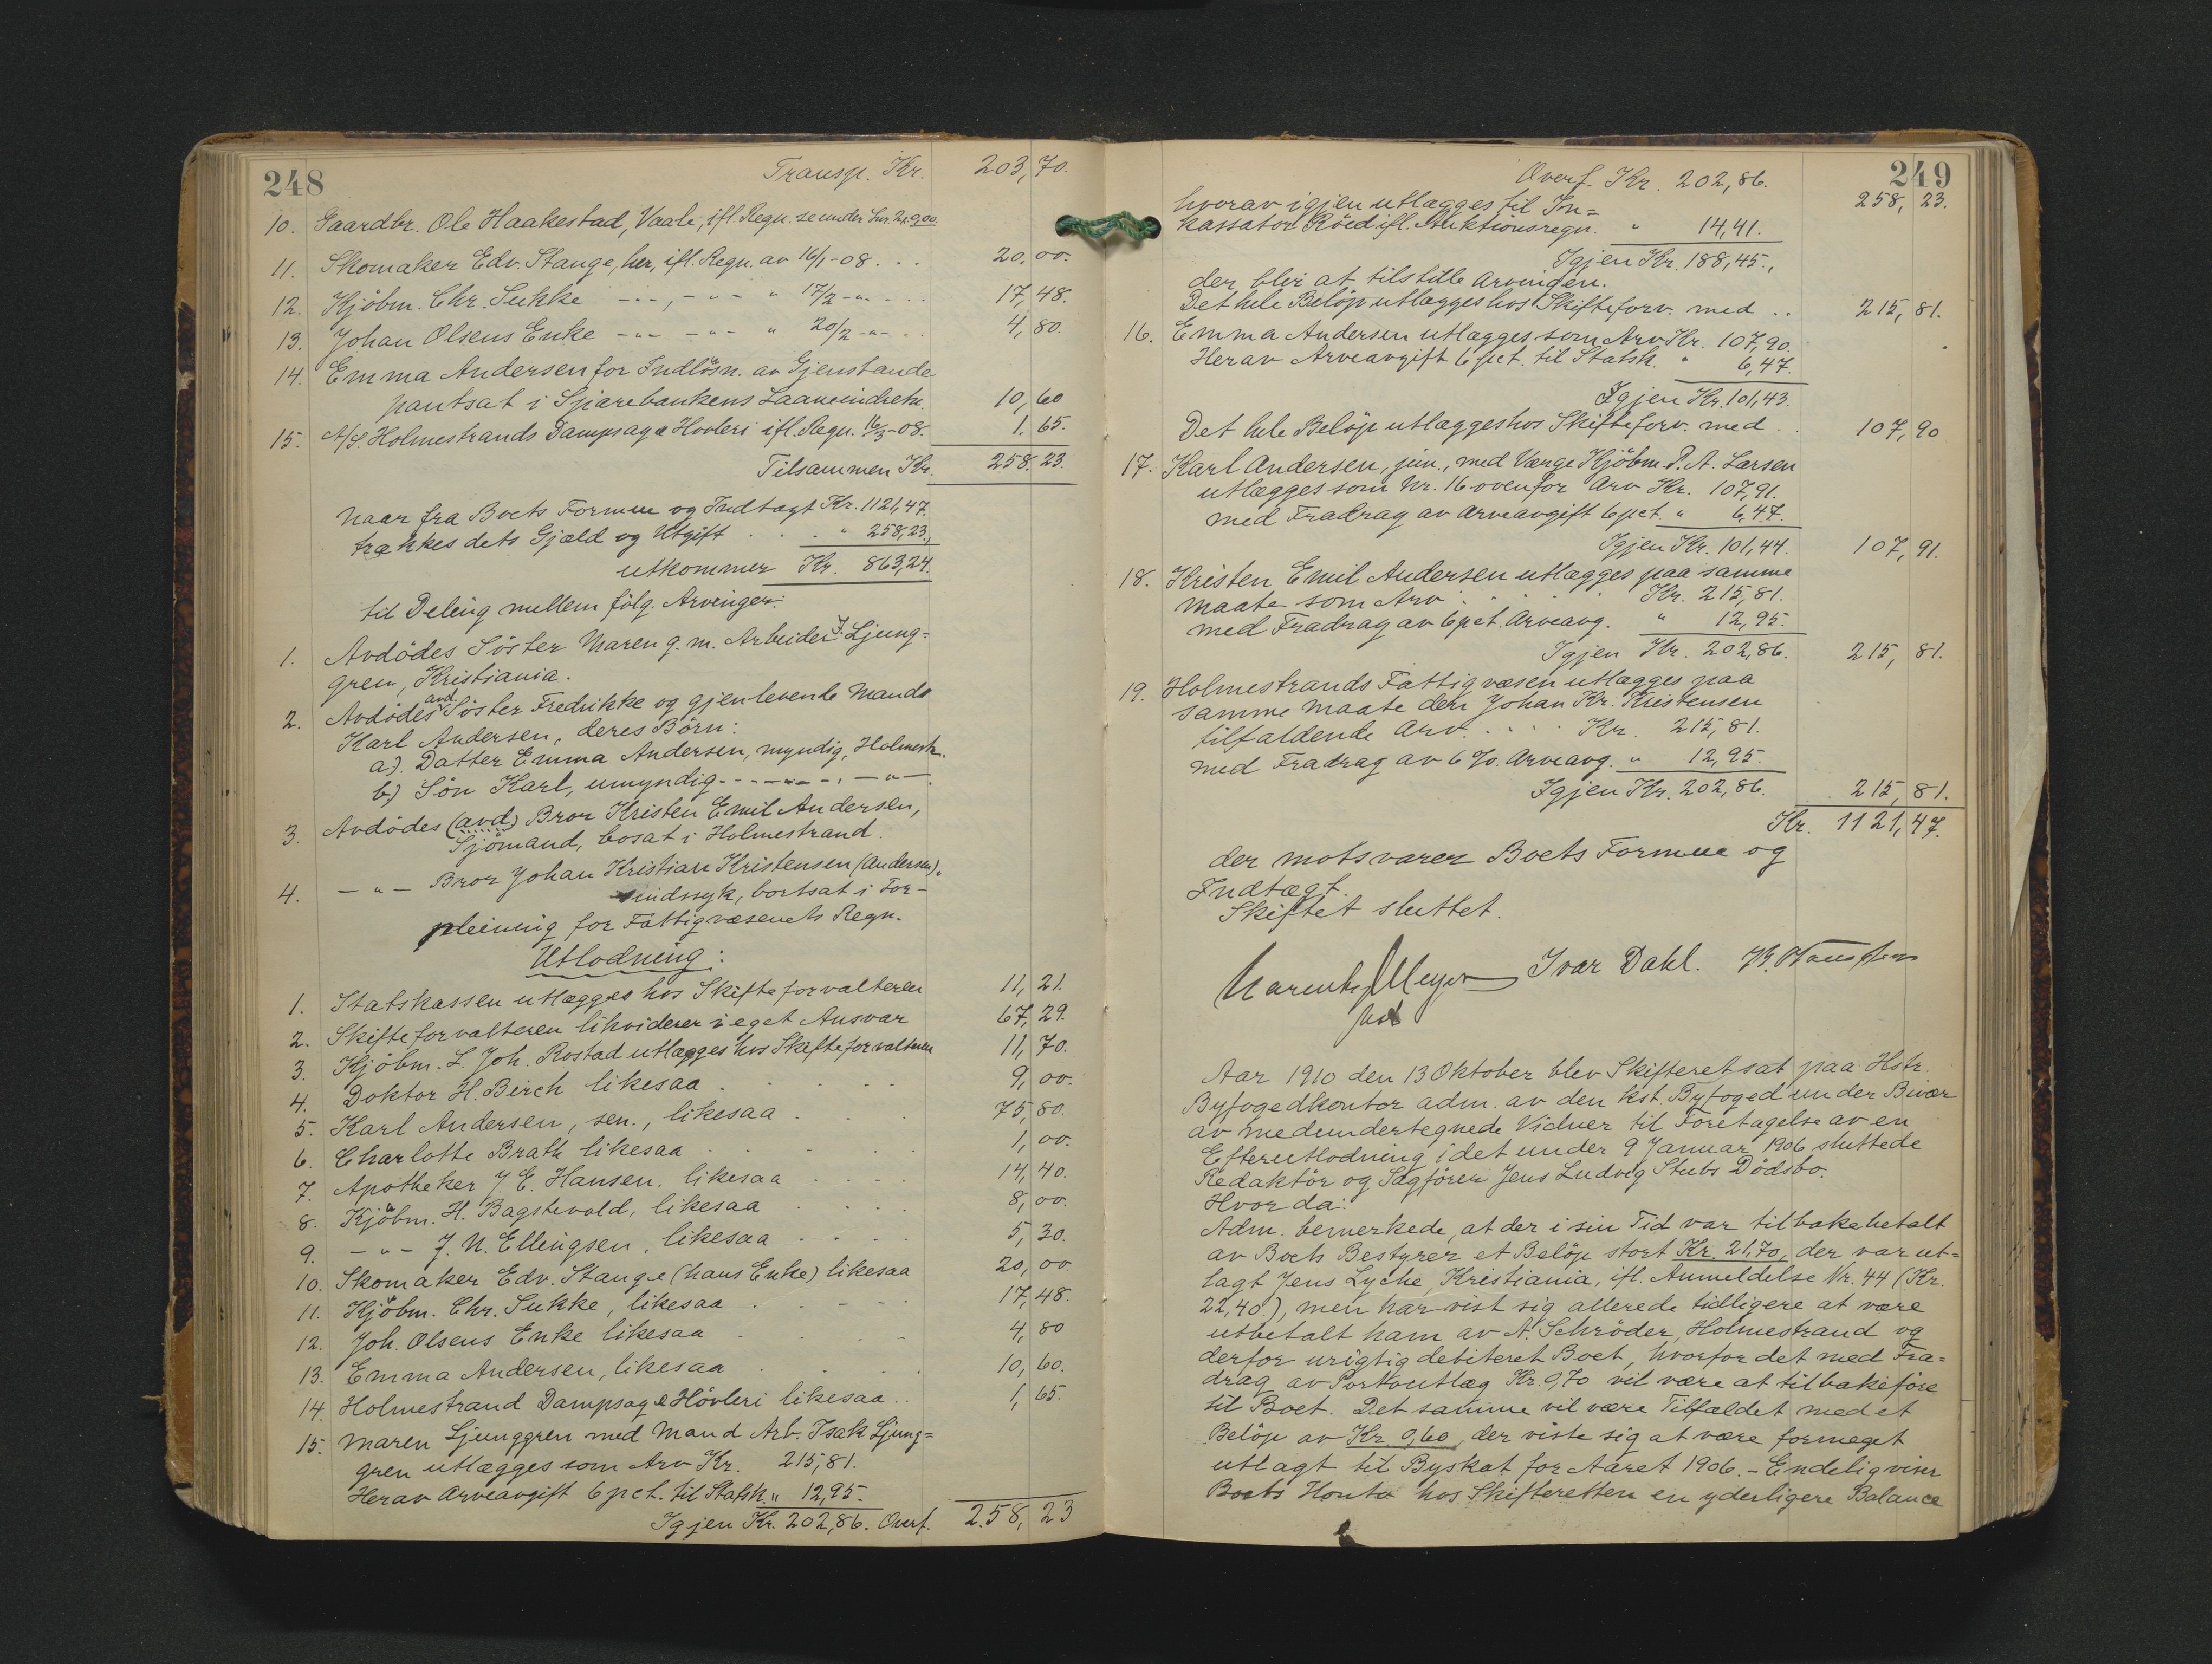 248
Transp. Kr. 203,70.
10. Gaardbr. Ole Haakestad, Vaale, ifl. Regn. se under
11. Skomaker Edv. Stange, her, ifl. Regn. av 16/1-08 . . . 20,00.
12. Kjöbm. Chr. Sukke -„- , -„- „ 17/2 -„- . . 17,48.
13. Johan Olsens Enke -„- -„- „ 20/2 -„- . . 4,80.
14. Emma Andersen for Indlösn. av Gjenstande
pantsat i Sparebankens Laaneindretn. 10,60
15. A/S. Holmestrands Dampsag & Hövleri ifl. Regn. 16/3-08. 1,65.
Tilsammen Kr. 258,23.
Naar fra Boets Formue og Indtægt Kr. 1121,47.
trækkes dets Gjæld og Utgift . . . „ 258,23.,
utkommer Kr. 863,24.
til Deling mellem fölg. Arvinger:
1. Avdödes Söster Maren g. m. Arbeider I. Ljung=
gren, Kristiania.
2. Avdödes avd. Söster Fredrikke og gjenlevende Mands
Karl Andersen, deres Börn:
a). Datter Emma Andersen, myndig, Holmestr.
b.) Sön Karl, umyndig - - -„- -, -„-
3. Avdödes (avd) Bror Kristen Emil Andersen,
Sjömand, bosat i Holmestrand.
4. -„- Bror Johan Kristian Kristensen (Andersen),
sindssyk, bortsat i For-
pleining for Fattigvæsenets Regn.
Utlodning:
1. Statskassen utlægges hos Skifteforvalteren 11,21.
2. Skifteforvalteren likviderer i eget Ansvar 67,29.
3. Kjöbm. L. Joh. Rostad utlægges hos Skifteforvalteren 11,70.
4. Doktor H. Birch likesaa . . . . . 9,00.
5. Karl Andersen, sen., likesaa . . . 75,80.
6. Charlotte Brath likesaa . . . . . 1,00.
7. Apotheker J. E. Hansen. likesaa . . . . 14,40.
8. Kjöbm. H. Bagstevold, likesaa . . . . 8,00.
9. -„- J. N. Ellingsen, likesaa . . . . 5,30.
10. Skomaker Edv. Stange (hans Enke) likesaa 20,00.
11. Kjöbm. Chr. Sukke, likesaa . . - - . 17,48.
12. Joh. Olsens Enke likesaa . . . . 4,80
13. Emma Andersen, likesaa . . . . 10,60.
14. Holmestrand Dampsag & Hövleri likesaa . . 1,65.
15. Maren Ljunggren med Mand Arb. Isak Ljung=
gren utlægges som Arv Kr. 215,81.
Herav Arveavgift 6 pct. til Statsk. „ 12,95.
Igjen Kr. 202,86. Overf. 258,23
249
Overf. Kr. 202,86. 258,23.
hvorav igjen utlægges til In=
kassator Röed ifl. Auktionsregn. „ 14,41.
Igjen Kr. 188,45.,
der blir at tilstille Arvingen.
Det hele Belöp utlægges hos Skifteforv. med . . 215,81.
16. Emma Andersen utlægges som Arv Kr. 107,90.
Herav Arveavgift 6 pct. til Statsk. „ 6,47.
Igjen Kr. 101,43.
Det hele Belöp utlægges hos Skifteforv. med . . 107,90
17. Karl Andersen, jun., med Værge Kjöbm. P. A. Larsen
utlægges som Nr. 16 ovenfor Arv Kr. 107,91.
med Fradrag av Arveavgift 6 pct. „ 6,47.
Igjen Kr. 101,44. 107,91.
18. Kristen Emil Andersen utlægges paa samme
Maate som Arv . . . . . Kr. 215,81.
med Fradrag av 6 pct. Arveavg. „ 12,95.
Igjen Kr. 202,86. 215,81.
19. Holmestrands Fattigvæsen utlægges paa
samme Maate den Johan Kr. Kristensen
tilfaldende Arv. . . . . Kr. 215,81.
med Fradrag av 6 %. Arveavg. „ 12,95.
Igjen Kr. 202,86. 215,81.
Kr. 1121,47.
der motsvarer Boets Formue og
Indtægt.
Skiftet sluttet.
Meyer Ivar Dahl.
Aar 1910 den 13 Oktober blev Skifteret sat paa Hstr.
Byfogedkontor adm. av den kst. Byfoged under Bivær
av medundertegnede Vidner til Foretagelse av en
Efterutlodning i det under 9 Januar 1906 sluttede
Redaktör og Sagförer Jens Ludvig Stubs Dödsbo.
Hvor da:
Adm. bemerkede, at der i sin Tid var tilbakebetalt
av Boets Bestyrer et Belöp stort Kr. 21,70, der var ut-
lagt Jens Lyche, Kristiania, ifl. Anmeldelse Nr. 44 (Kr.
22,40), men har vist sig allerede tidligere at være
utbetalt ham av N. Schröder, Holmestrand og
derfor urigtig debiteret Boet, hvorfor det med Fra=
drag av Portoutlæg Kr. 0,70 vil være at tilbakeföre
til Boet. Det samme vil være Tilfældet med et
Belöp av Kr. 0,60, der viste sig at være formeget
utlagt til Byskat for Aaret 1906. - Endelig viser
Boets Konto hos Skifteretten en yderligere Balance